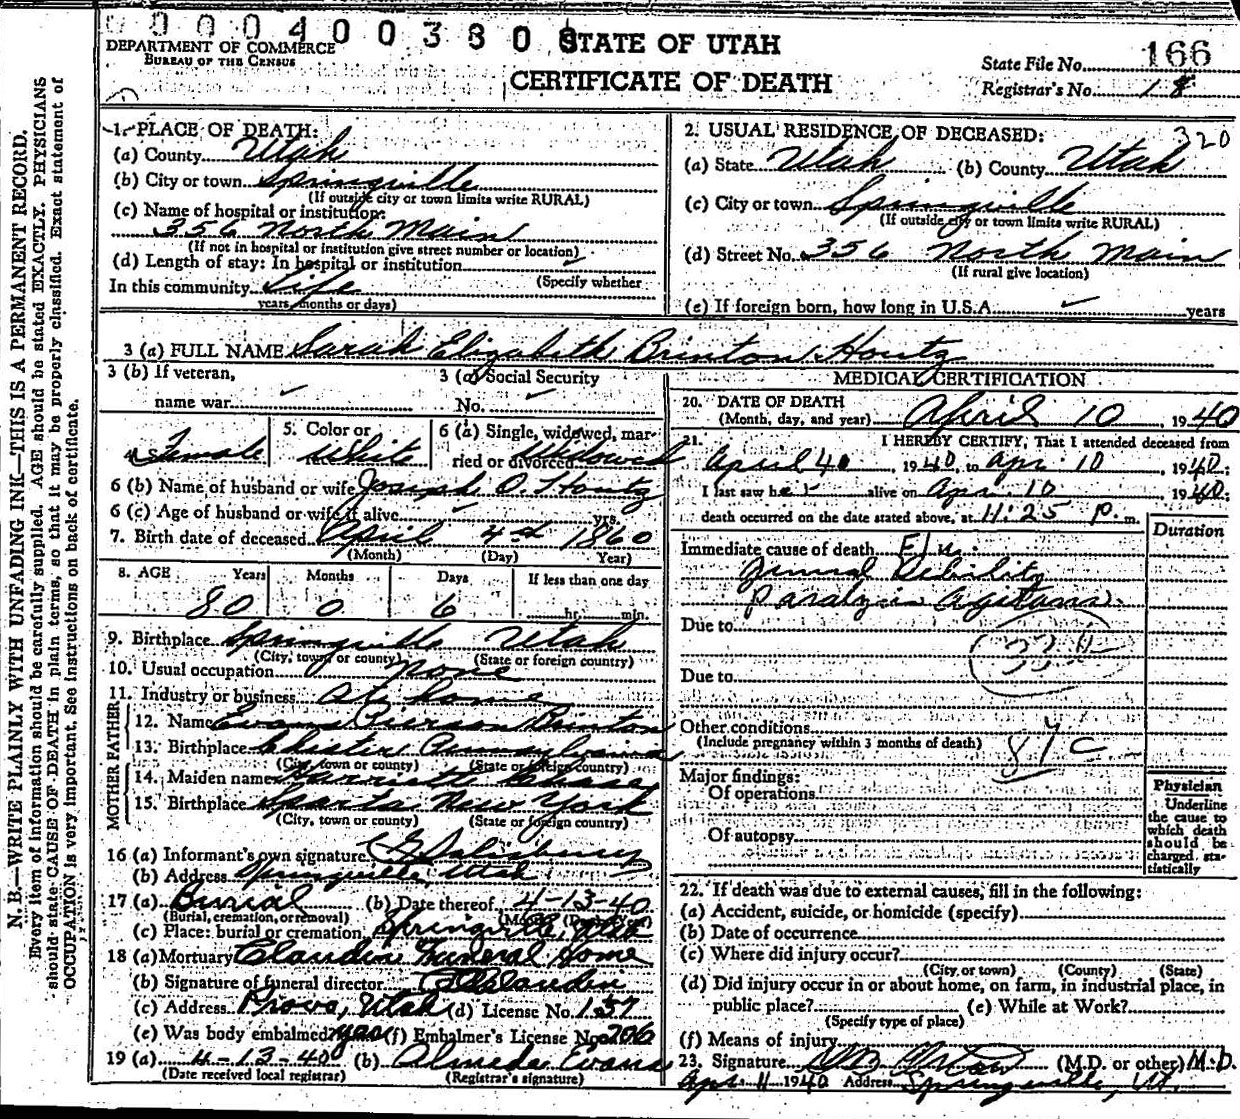 0 0 0 4 0 0 3 8 0 8
DEPARTMENT OF COMMERCE
BUREAU OF THE CENSUS
STATE OF UTAH
CERTIFICATE OF DEATH
State File No. 166
Registrar's No. 18
N. B.—WRITE PLAINLY WITH UNFADING INK—THIS IS A PERMANENT RECORD.
Every item of information should be carefully supplied. AGE should be stated EXACTLY. PHYSICIANS
should state CAUSE OF DEATH in plain terms, so that it may be properly classified. Exact statement of
OCCUPATION is very important. See instructions on back of certificate.
1. PLACE OF DEATH:
(a) County Utah
(b) City or town Springville
(If outside city or town limits write RURAL)
(c) Name of hospital or institution:
356 North Main
(If not in hospital or institution give street number or location)
(d) Length of stay: In hospital or institution
(Specify whether
In this community Life
years, months or days)
2. USUAL RESIDENCE OF DECEASED: 320
(a) State Utah (b) County Utah
(c) City or town Springville
(If outside city or town limits write RURAL)
(d) Street No. 356 North Main
(If rural give location)
(e) If foreign born, how long in U.S.A. years
3 (a) FULL NAME Sarah Elizabeth Brinton Houtz
3 (b) If veteran,
name war
3 (c) Social Security
No.
4. Female
5. Color or
race White
6 (a) Single, widowed, mar-
ried or divorced Widowed
6 (b) Name of husband or wife Joseph O. Houtz
6 (c) Age of husband or wife if alive yrs.
7. Birth date of deceased April 4th 1860
(Month) (Day) Year)
8. AGE Years Months Days If less than one day
80 0 6 hr. min.
9. Birthplace Springville Utah
(City, town or county) (State or foreign country)
10. Usual occupation none
11. Industry or business at home
FATHER
12. Name Evans Pierson Brinton
13. Birthplace Chester Pennsylvania
(City, town or county) (State or foreign country)
MOTHER
14. Maiden name Harriette
15. Birthplace Sparta New York
(City, town or county) (State or foreign country)
16 (a) Informant's own signature Salisbury
(b) Address Springville, Utah
17 (a) Burial (b) Date thereof 4-13-40
(Burial, cremation, or removal) (Month) (Day) (Year)
(c) Place: burial or cremation Springville, Utah
18 (a) Mortuary Claudin Funeral Home
(b) Signature of funeral director Claudin
(c) Address Provo, Utah (d) License No. 137
(e) Was body embalmed? yes (f) Embalmer's License No. 206
19 (a) 4-13-40 (b) Almeda Evans
(Date received local registrar) (Registrar's signature)
MEDICAL CERTIFICATION
20. DATE OF DEATH
(Month, day, and year) April 10 1940
21. I HEREBY CERTIFY, That I attended deceased from
April 40, 1940, to Apr. 10, 1940;
I last saw her alive on Apr. 10, 1940;
death occurred on the date stated above, at 11:25 P. m.
Duration
Immediate cause of death
General Debility
Paralysis Agitans
Due to
Due to
Other conditions
(Include pregnancy within 3 months of death) 87c
Major findings:
Of operations
Of autopsy
Physician
Underline
the cause to
which death
should be
charged sta-
tistically
22. If death was due to external causes, fill in the following:
(a) Accident, suicide, or homicide (specify)
(b) Date of occurrence
(c) Where did injury occur?
(City or town) (County) (State)
(d) Did injury occur in or about home, on farm, in industrial place, in
public place? (e) While at Work?
(Specify type of place)
(f) Means of injury
23. Signature (M.D. or other) M.D.
Apr. 11 1940 Address Springville, Ut.